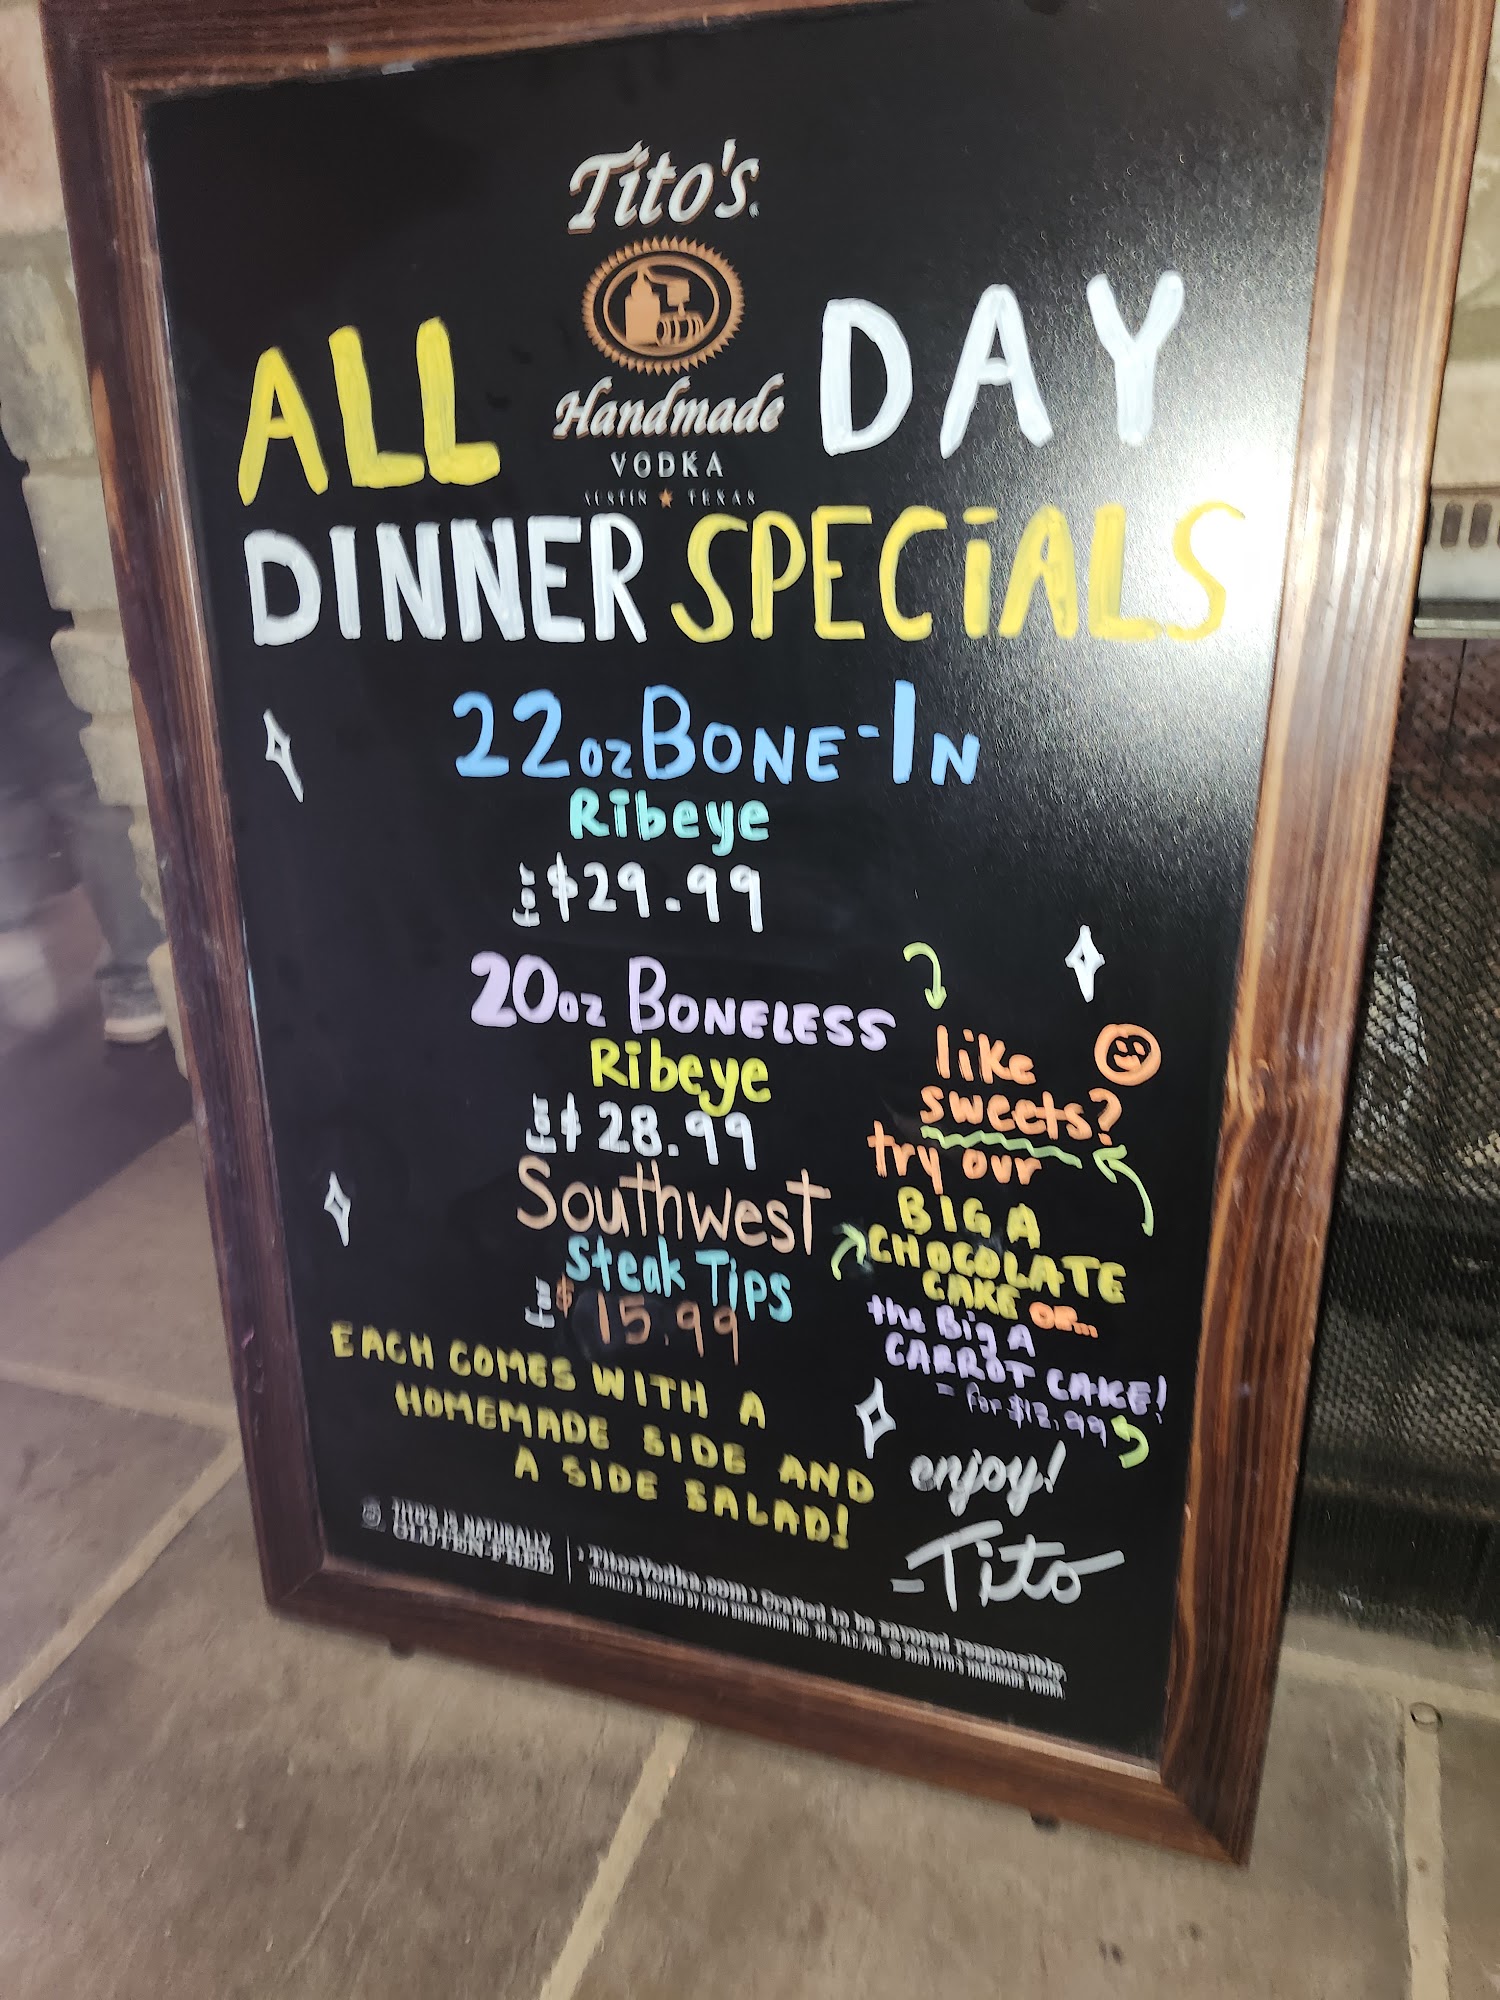 Tito's
Handmade
VODKA
AUSTIN ★ TEXAS
ALL DAY
DINNER SPECiALS
22oz BONE-IN
Ribeye
for $29.99
20oz BONELESS
Ribeye
for $28.99
Southwest
Steak Tips
for $15.99
EACH COMES WITH A
HOMEMADE SIDE AND
A SIDE SALAD!
like
sweets?
try our
BIG A
CHOCOLATE
CAKE OR...
the Big A
CARROT CAKE!
enjoy!
-Tito
TITO'S IS NATURALLY
GLUTEN-FREE
TitosVodka.com | Crafted to be savored responsibly.
DISTILLED & BOTTLED BY FIFTH GENERATION INC. 40% ALC./VOL. © 2020 TITO'S HANDMADE VODKA.